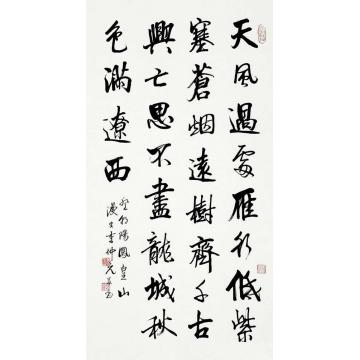 天風過處雁行低紫
塞蒼烟遠樹齊千古
興亡思不盡龍城秋
色滿遼西
登朝陽鳳凰山
漫步李仲元并書